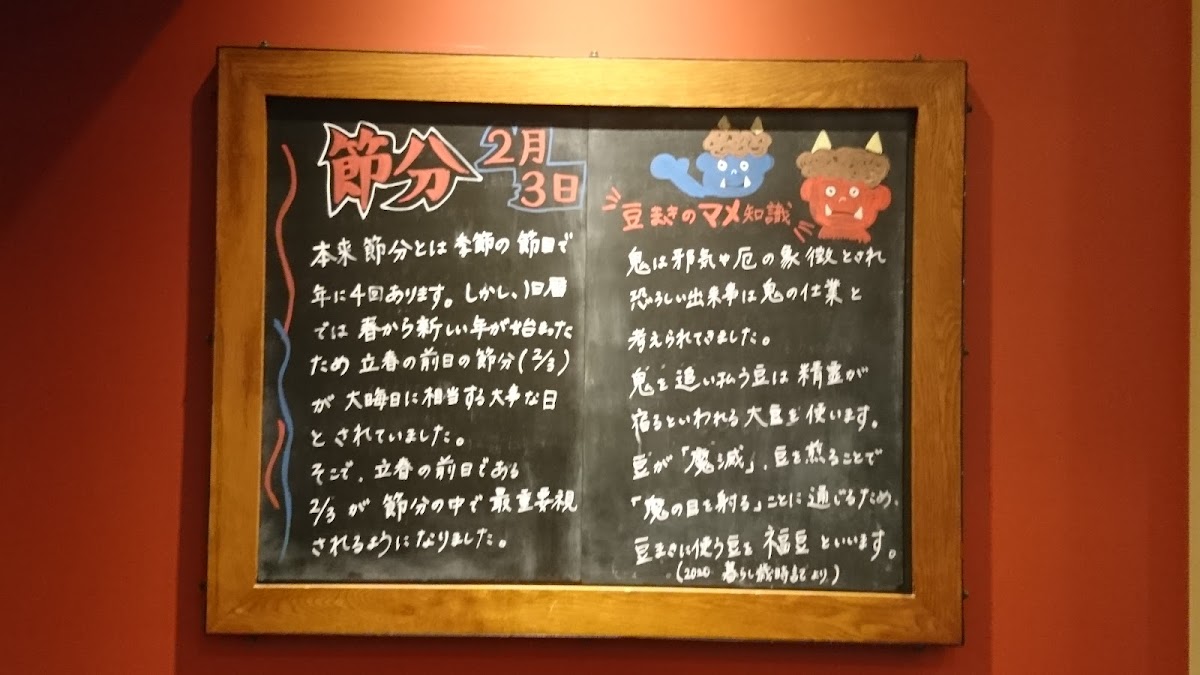 節分
2月
3日
本来 節分とは 季節の 節目で
年に4回あります。しかし、旧暦
では 春から新しい年が始まった
ため 立春の前日の節分(2/3)
が 大晦日に相当する大事な日
と されていました。
そこで、立春の前日である
2/3 が 節分の中で 最重要視
されるようになりました。
豆まきのマメ知識
鬼は邪気や厄の象徴とされ
恐ろしい出来事は鬼の仕業と
考えられてきました。
鬼を追い払う豆は 精霊が
宿るといわれる大豆を使います。
豆が「魔滅」、豆を煎ることで
「鬼の目を射る」ことに通じるため、
豆まきに使う豆を 福豆 といいます。
(2020 暮らし歳時記より)